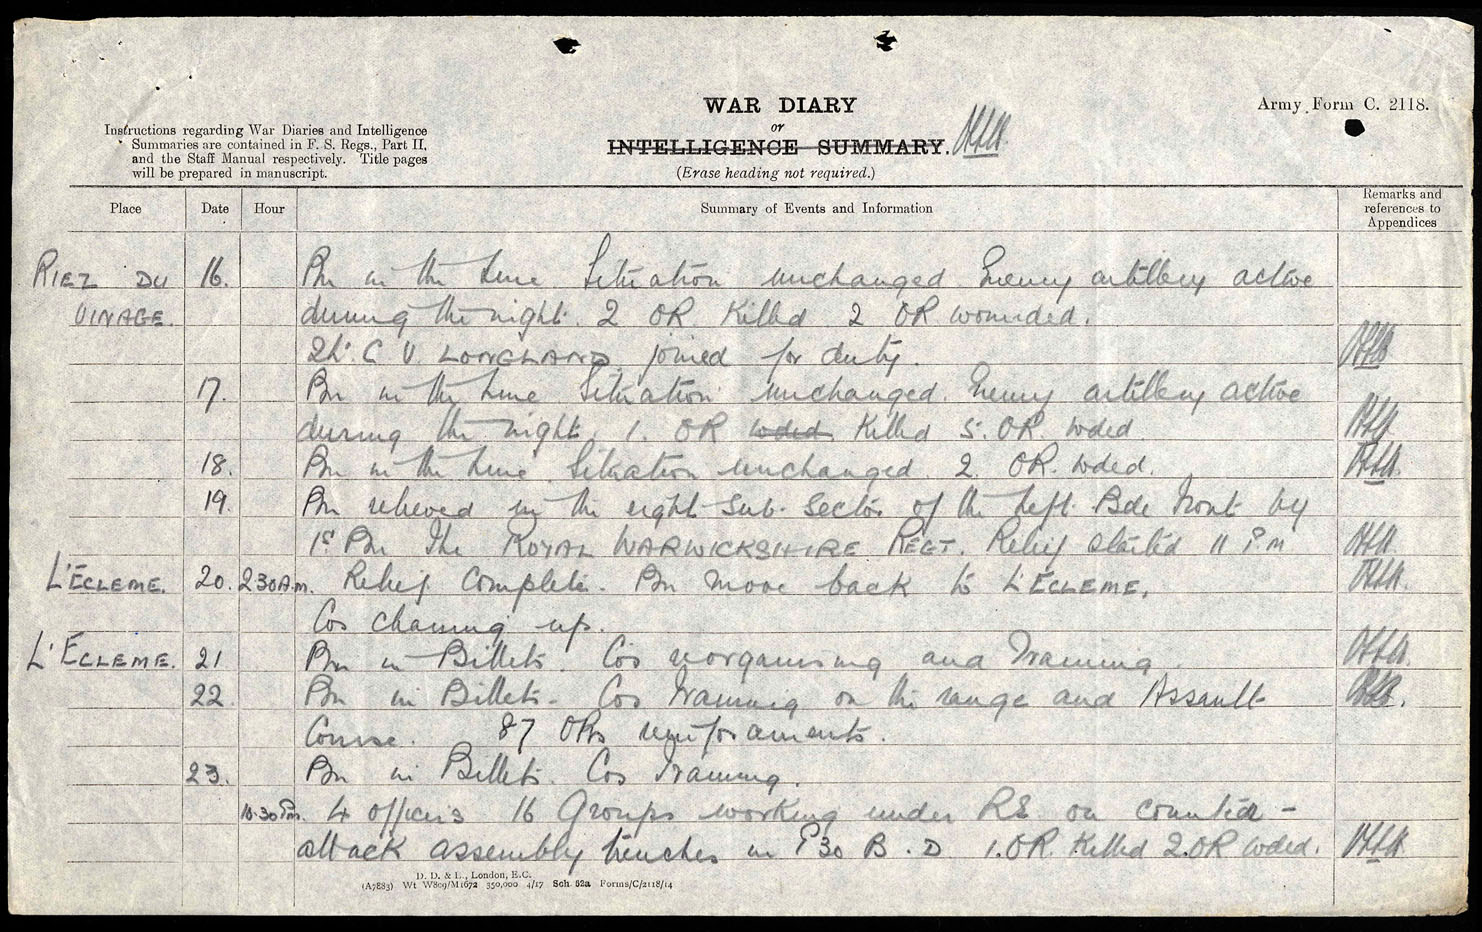 WAR DIARY
or
INTELLIGENCE SUMMARY.
(Erase heading not required.)
Army Form C. 2118.
Instructions regarding War Diaries and Intelligence
Summaries are contained in F. S. Regs., Part II,
and the Staff Manual respectively. Title pages
will be prepared in manuscript.
Place Date Hour Summary of Events and Information Remarks and references to Appendices
RIEZ DU 16. Bn in the Line Situation unchanged. Enemy artillery active
VINAGE. during the night. 2 OR Killed 2 OR wounded.
2Lt. C V. LONGLAND joined for duty.
17. Bn in the Line Situation unchanged. Enemy artillery active
during the night. 1. OR wded Killed 5. OR. wded.
18. Bn in the Line. Situation unchanged. 2. OR. wded.
19. Bn relieved in the right Sub. Sector of the Left Bde Front by
1st Bn The ROYAL WARWICKSHIRE REGT. Relief started 11 P.M
L'ECLEME. 20. 2 30 A.m. Relief Complete. Bn move back to L'ECLEME.
Cos cleaning up.
L'ECLEME. 21 Bn in Billets. Cos reorganising and Training.
22. Bn in Billets. Cos Training on the range and Assault
Course. 87 ORs reinforcements.
23. Bn in Billets. Cos Training.
10.30 Pm. 4 officers 16 Groups working under RE on counter-
attack assembly trenches in P30 B. D. 1.OR. Killed 2.OR wded.
D. D. & L., London, E.C.
(A7883) Wt W809/M1672 350,000 4/17 Sch. 52a Forms/C/2118/14